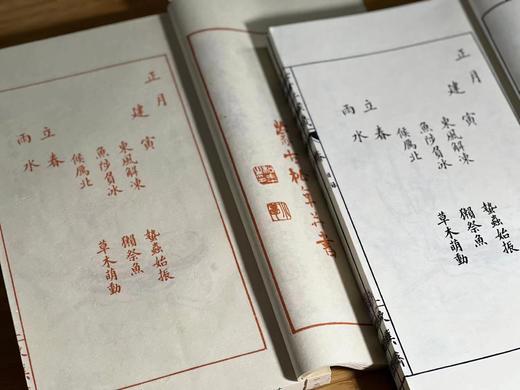 正月建寅
東風解凍
蟄蟲始振
魚陟負冰
獺祭魚
候鴈北
草木萌動
立春
雨水
正月建寅
東風解凍
蟄蟲始振
魚陟負冰
獺祭魚
候鴈北
草木萌動
立春
雨水